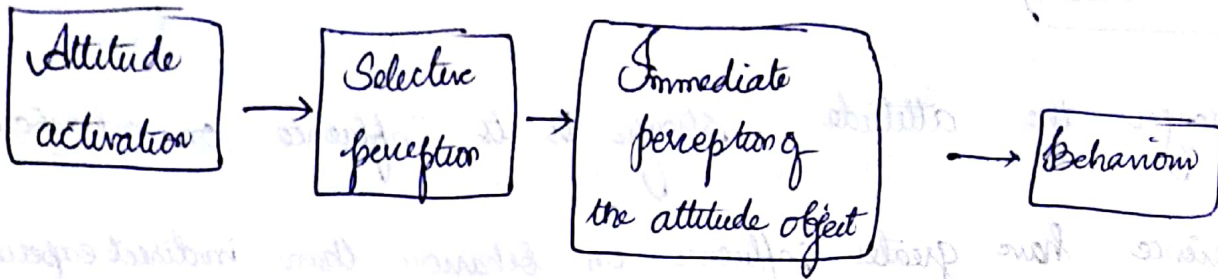 Attitude
activation
Selective
perception
Immediate
perception of
the attitude object
Behaviour